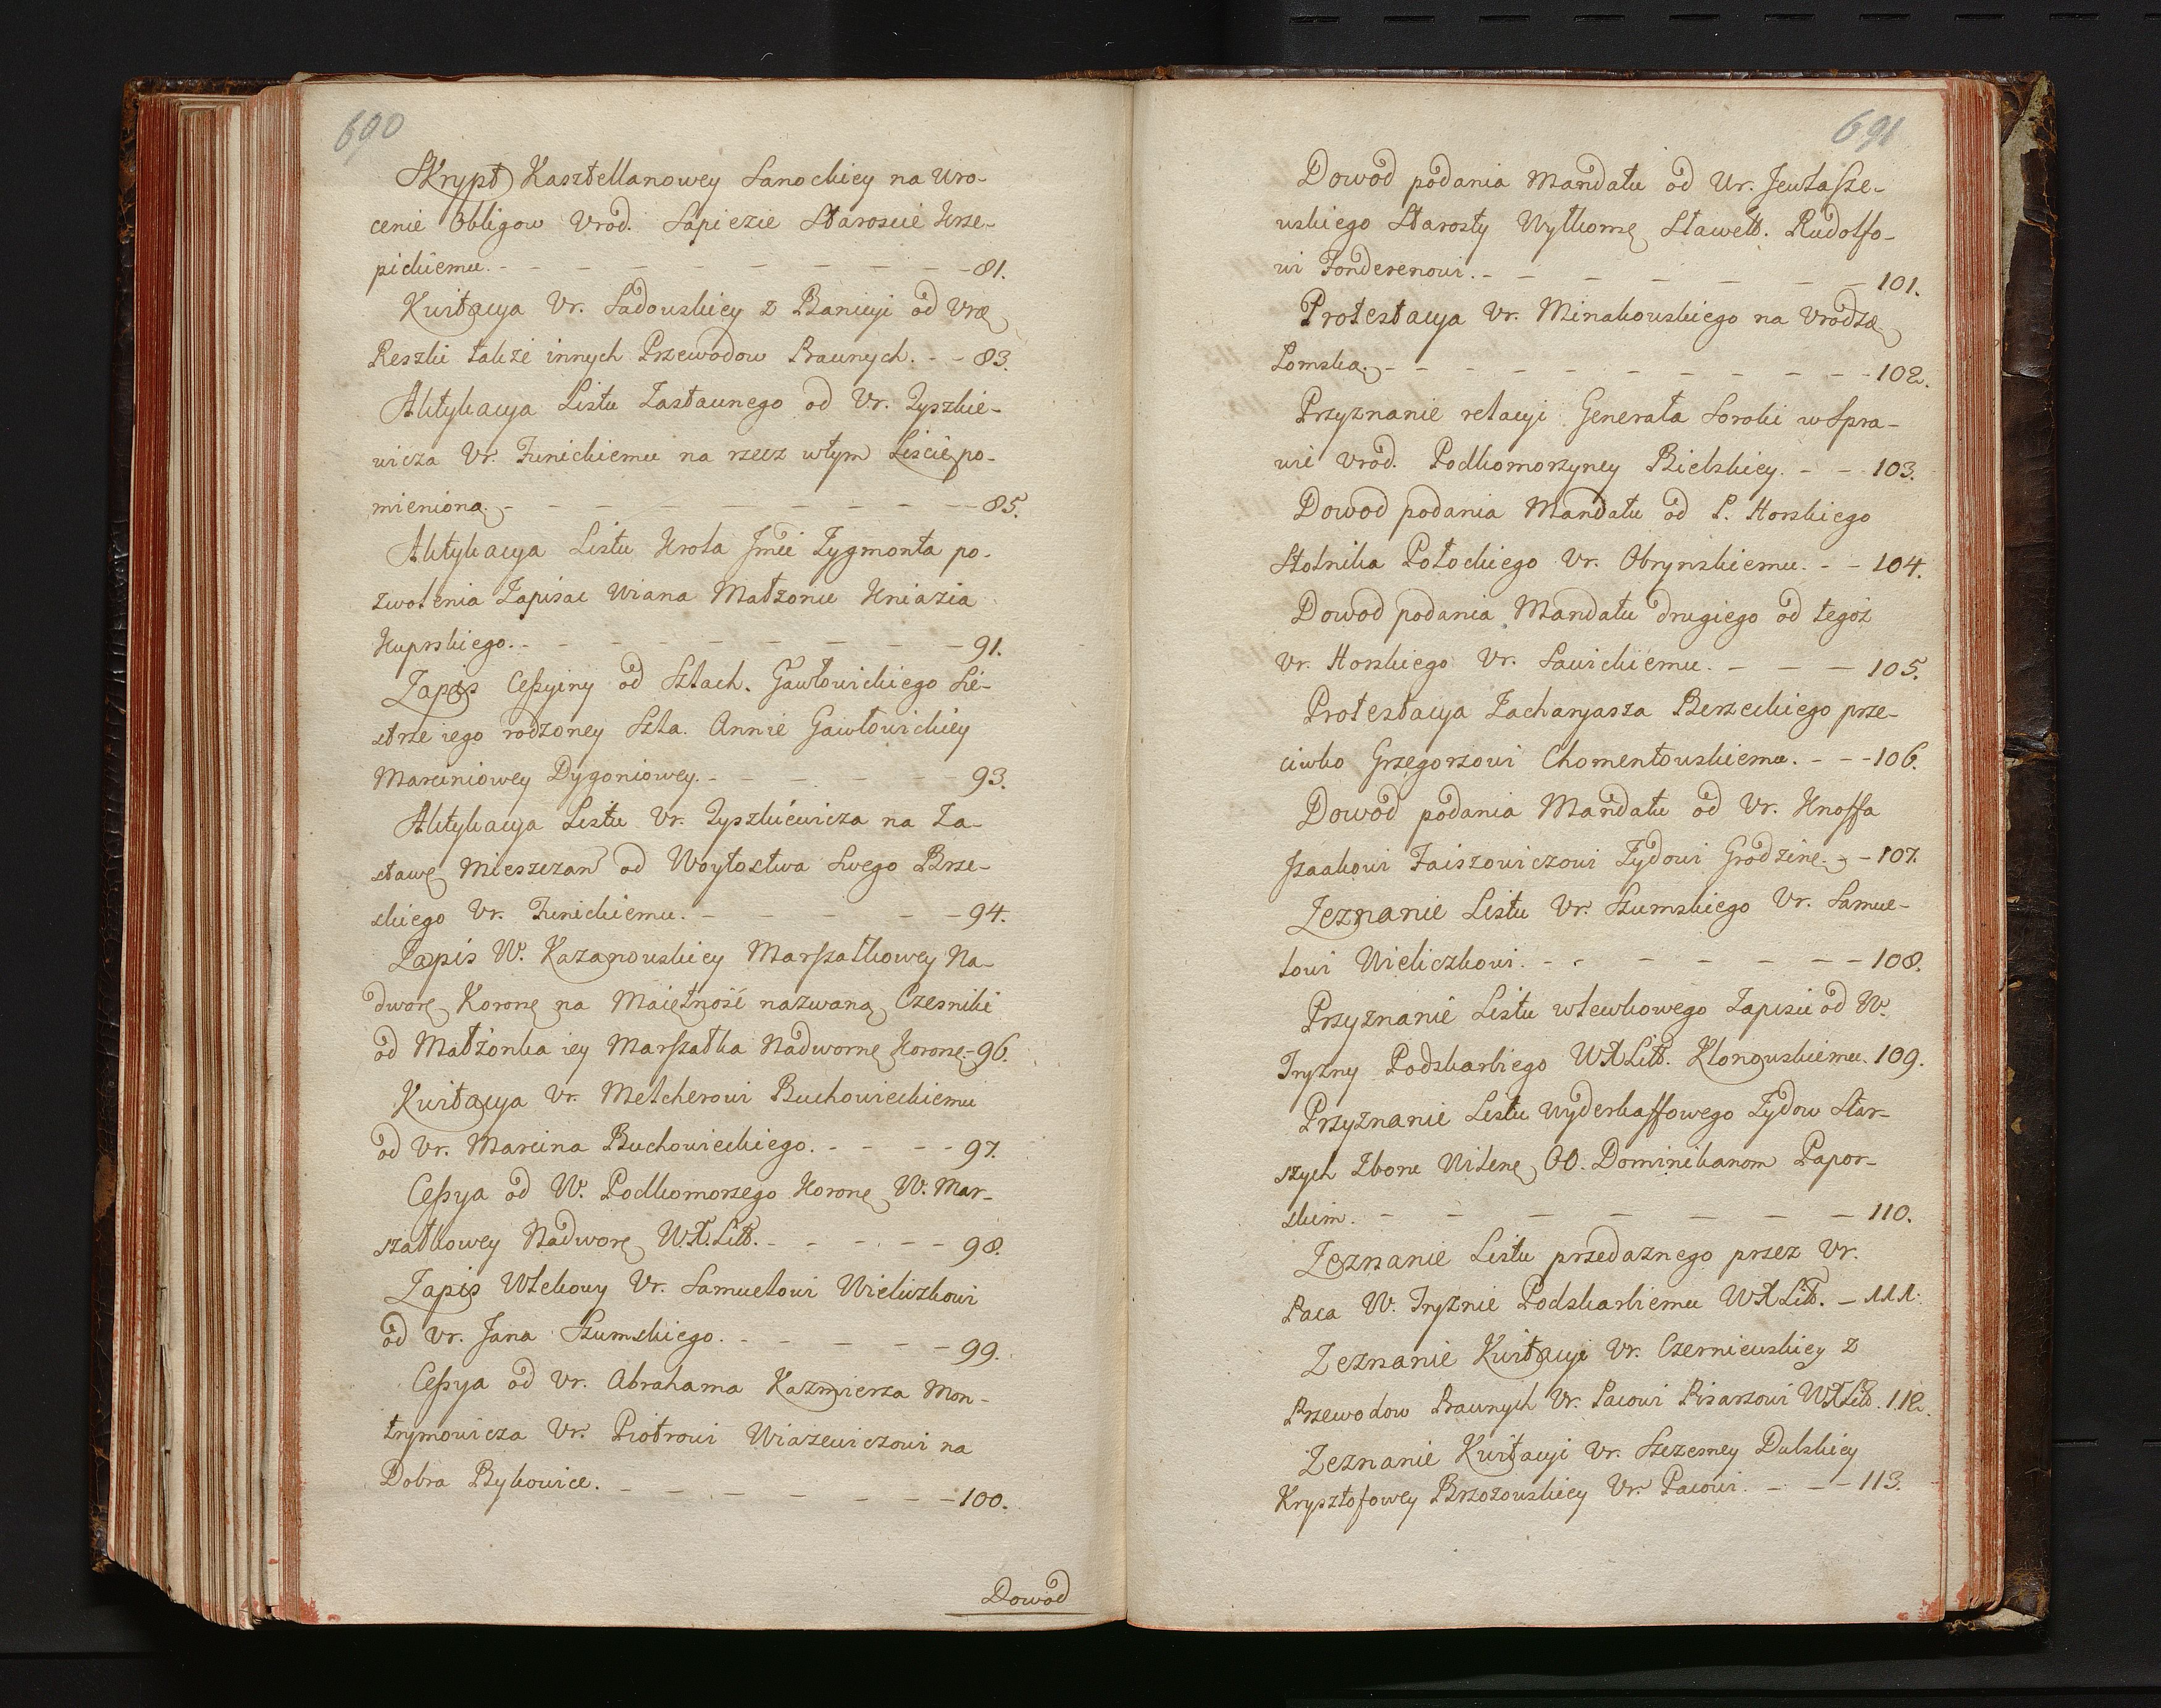 690
Skrypt Kasztellanowey Sanockiey na Wro-
cenie Obligow Vrod. Sapiezie Staroscie Krze-
pickiemu. - - - - - - - - - - 81.
Kwitacya Vr. Sadowskiey z Banicyi od Vrę
Reszki także innych Przewodow Prawnych. - - 83.
Aktykacya Listu Zastawnego od Vr. Tyszkie-
wicza Vr. Tunickiemu na rzecz wtym Liście po-
mienioną - - - - - - - - - 85.
Aktykacya Listu Krola Jmći Zygmonta po-
zwolenia Zapisac Wiana Małzonce Kniazia
Kuprskiego. - - - - - - - - 91.
Zapis Cessyiny od Szlach. Gawłowickiego Sie-
strze iego rodzoney Szla. Annie Gawłowickiey
Marciniowey Dygoniowey. - - - - - - 93.
Aktykacya Listu Vr. Tyszkiewicza na Za-
stawę Mieszczan od Woytostwa Swego Brze-
skiego Vr. Tunickiemu. - - - - - - 94.
Zapis W. Kazanowskiey Marszałkowey Na-
dworę Koronę na Maiętność nazwaną Czesniki
od Małżonka iey Marszałka Nadwornę Koronę - 96.
Kwitacya Vr. Melcherowi Buchowieckiemu
od Vr. Marcina Buchowieckiego. - - - - 97.
Cessya od W. Podkomorzego Koronę W. Mar-
szałkowey Nadworę W.X.Litt. - - - - - 98.
Zapis Wlekowy Vr. Samuelowi Wieliczkowi
od Vr. Jana Szumskiego. - - - - - 99.
Cessya od Vr. Abrahama Kazmierza Mon-
trymowicza Vr. Piotrowi Wiazewiczowi na
Dobra Bykowice. - - - - - - - 100.
Dowod
691
Dowod podania Mandatu od Ur. Jewłasze-
wskiego Starosty Wytkomę Sławett. Rudolfo-
wi Fonderenowi. - - - - - - - 101.
Protestacya Vr. Minakowskiego na Vrodzę
Łomską - - - - - - - - - - 102.
Przyznanie relacyi Generała Soroki w Spra-
wie Vrod. Podkomorzyney Bielskiey. - - - 103.
Dowod podania Mandatu od P. Horskiego
Stolnika Połockiego Vr. Obrynskiemu. - - 104.
Dowod podania Mandatu drugiego od tegoż
Vr. Horskiego Vr. Sawickiemu. - - - 105.
Protestacya Zacharyasza Berzeckiego prze-
ciwko Grzegorzowi Chomentowskiemu. - - - 106.
Dowod podania Mandatu od Vr. Knoffa
Jzaakowi Faiszowiczowi Zydowi Grodzinę. - - 107.
Zeznanie Listu Vr. Szumskiego Vr. Samue-
lowi Wieliczkowi. - - - - - - - 108.
Przyznanie Listu wlewkowego Zapisu od W.
Tryzny Podskarbiego WXLitt. Klonowskiemu. 109.
Przyznanie Listu wyderkaffowego Zydow Star-
szych Zboru Wilenę OO. Dominikanom Papor-
skim. - - - - - - - - 110.
Zeznanie Listu przedaznego przez Vr.
Paca W. Tryznie Podskarbiemu WXLitt. - 111.
Zeznanie Kwitacyi Vr. Czerniewskiey z
Przewodow Prawnych Vr. Pacowi Pisarzowi WXLitt. 112.
Zeznanie Kwitacyi Vr. Szczesney Dulskiey
Krysztofowey Brzozowskiey Vr. Pacowi. - - - 113.